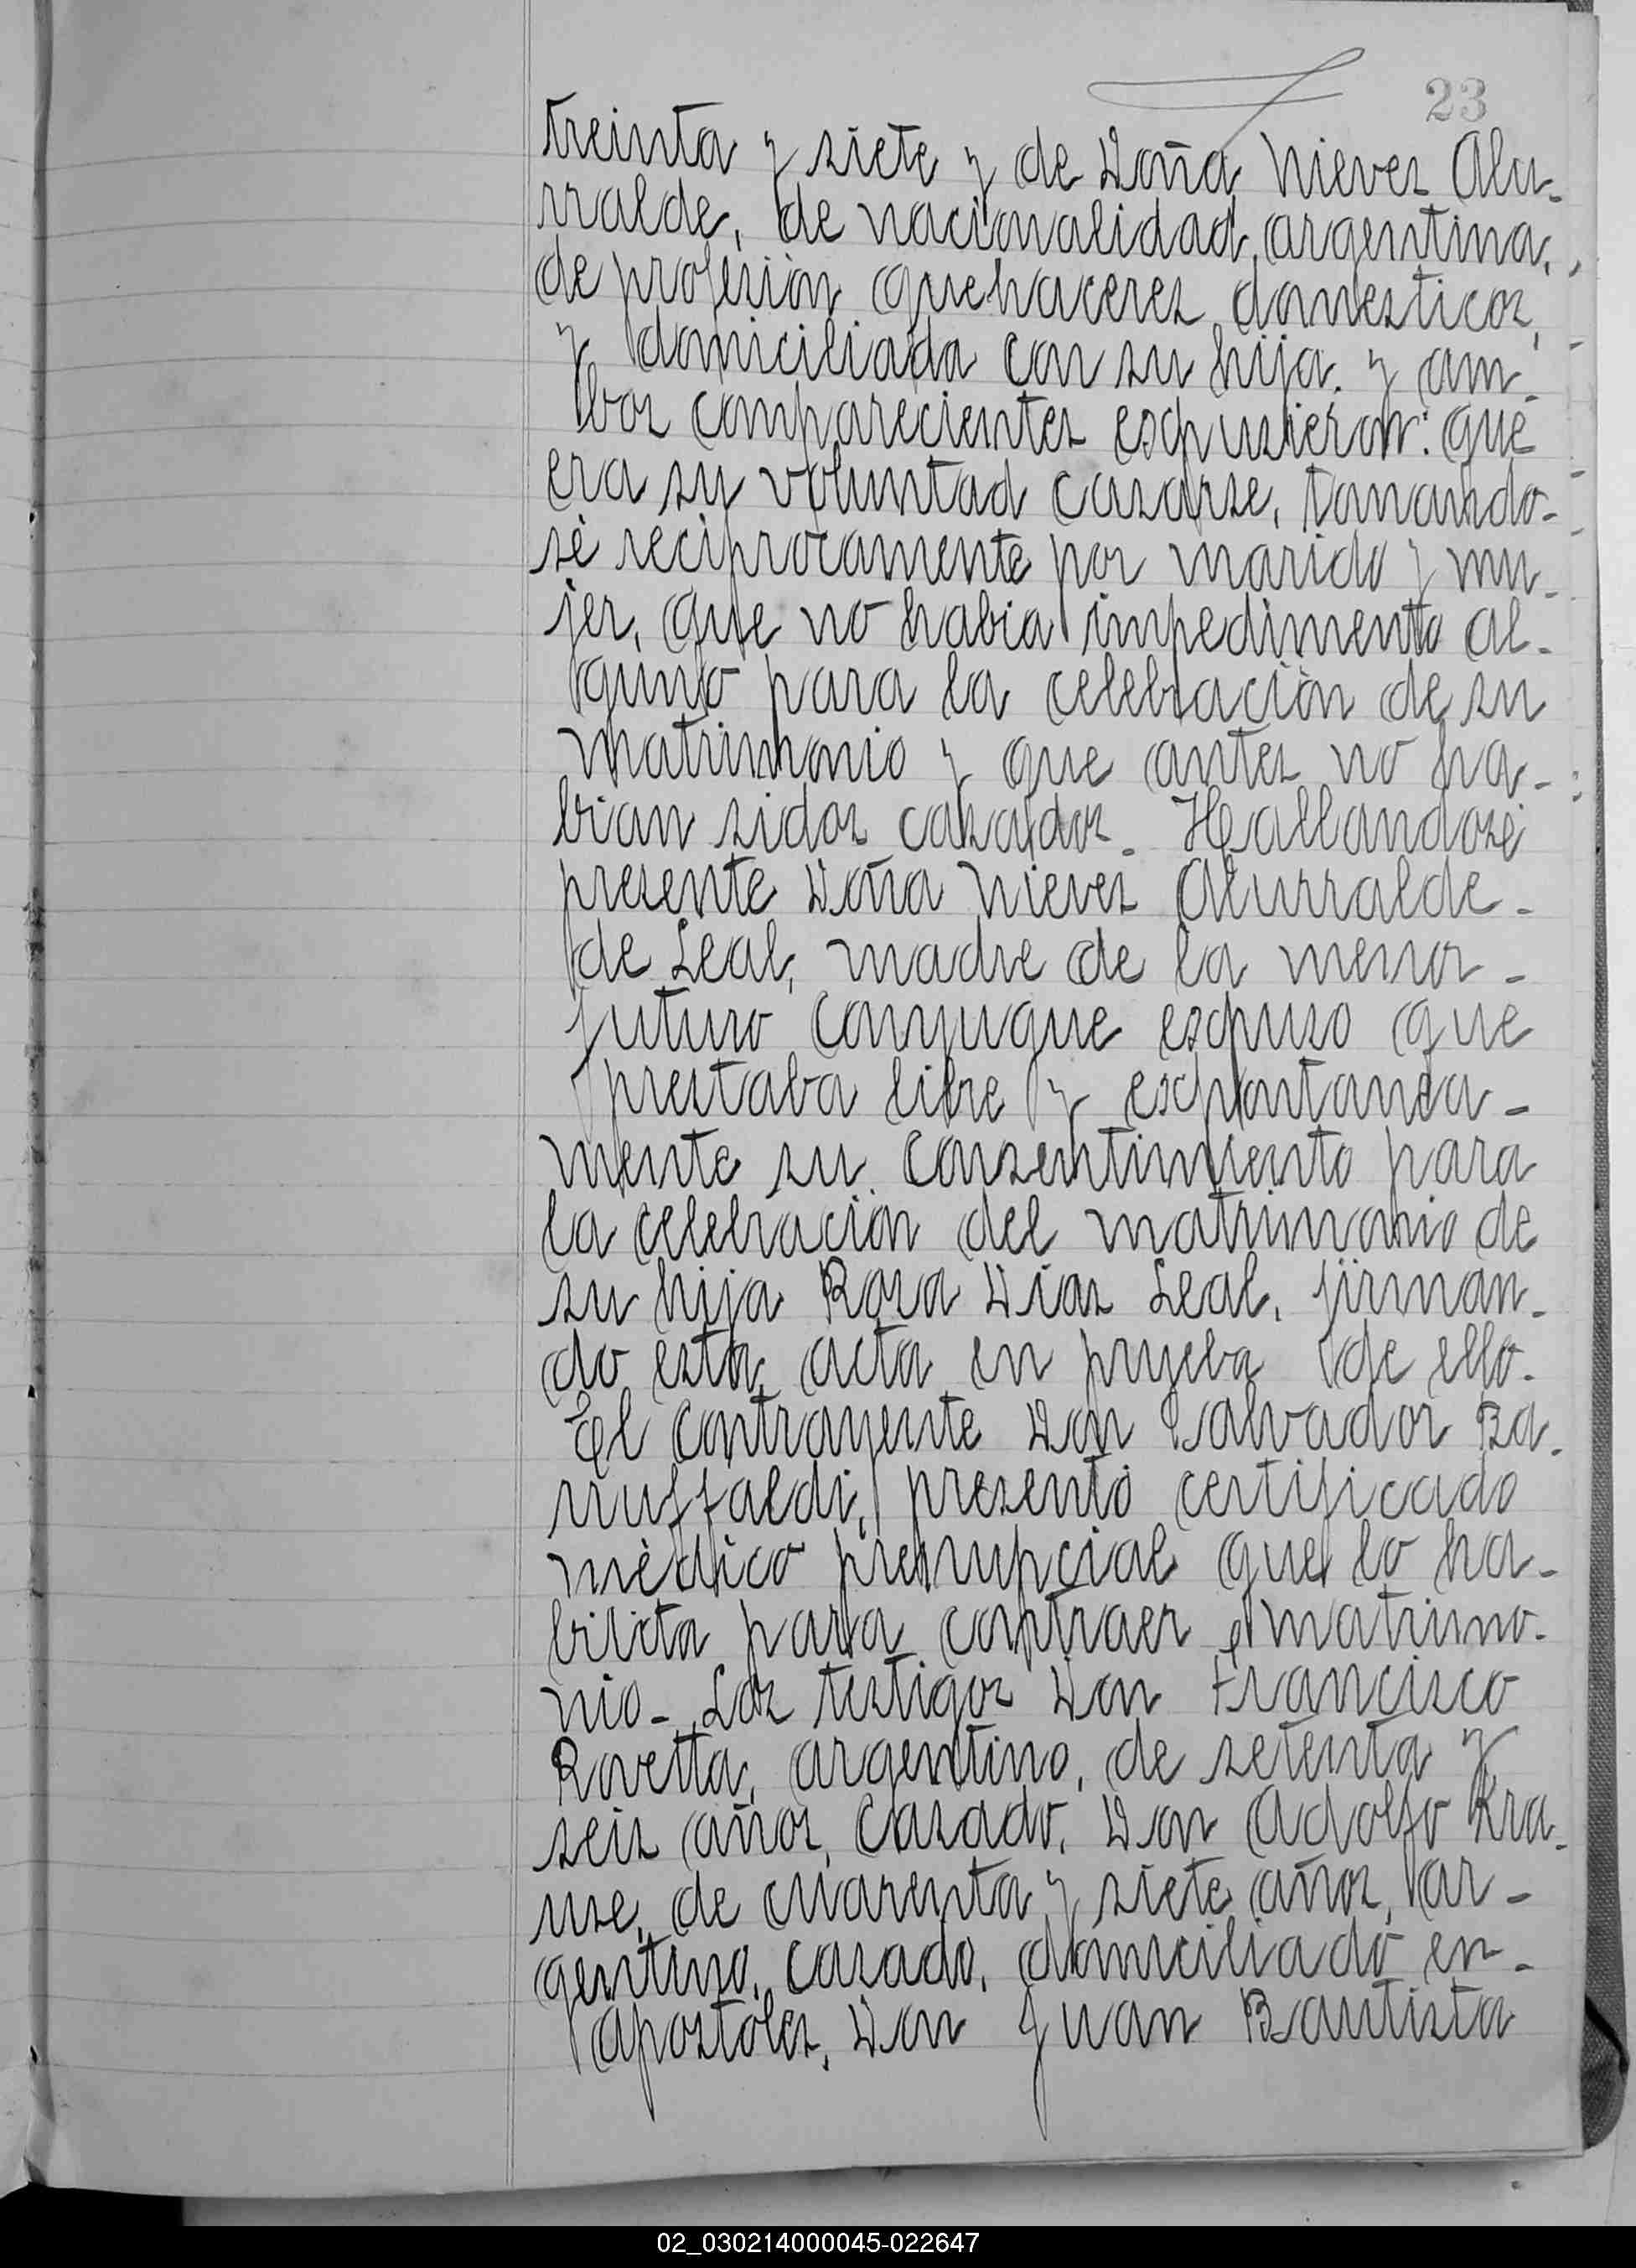 23
treinta y siete y de Doña Nieves Alu-
rralde, de nacionalidad argentina,
de profesión quehaceres domesticos,
y domiciliada con su hija. y am-
bos comparecientes expusieron: que
era su voluntad casarse, tomando-
se reciprocamente por marido y mu-
jer, que no habia impedimento al-
guno para la celebración de su
matrimonio y que antes no ha-
bian sidos casados. Hallandose
presente Doña Nieves Alurralde-
de Leal, madre de la menor-
futuro conyugue expuso que
prestaba libre y expontanea-
mente su consentimiento para
la celebración del matrimonio de
su hija Rosa Dias Leal, firman-
do esta acta en prueba de ello.
El contrayente Don Salvador Ba-
rruffaldi, presentó certificado
médico prenupcial que lo ha-
bilita para contraer matrimo-
nio- Los testigos Don Francisco
Rovetta, argentino, de setenta y
seis años, casado, Don Adolfo Kra-
use, de cuarenta y siete años, ar-
gentino, casado, domiciliado en-
apostoles, Don Juan Bautista
02_030214000045-022647